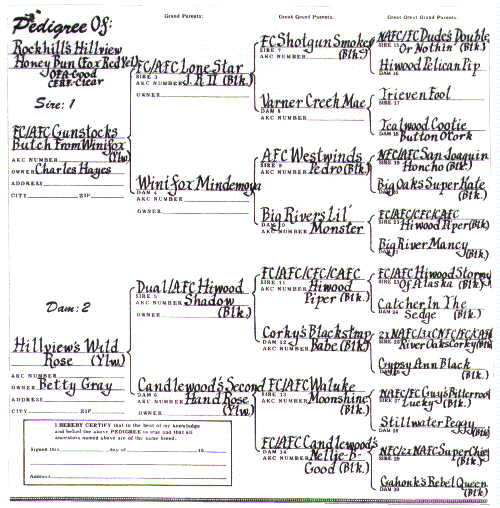 Pedigree Of:
Grand Parents:
Great Grand Parents:
Great Great Grand Parents:
Rockhill's Hillview
Honey Bun (Fox Red Yel)
OFA-Good
CERF-Clear
Sire: 1
FC/AFC Gunstocks
Butch From Winifox
(Ylw)
AKC NUMBER
OWNER Charles Hayes
ADDRESS
CITY ZIP
Dam: 2
Hillview's Wild
Rose (Ylw)
AKC NUMBER
OWNER Betty Gray
ADDRESS
CITY ZIP
I HEREBY CERTIFY that to the best of my knowledge
and belief the above PEDIGREE is true and that all
ancestors named above are of the same breed.
Signed this day of 19
Address
FC/AFC Lone Star
SIRE 3 J.R II (Blk.)
AKC NUMBER
OWNER
Winifox Mindemoya
DAM 4
AKC NUMBER
OWNER
Dual/AFC Hiwood
SIRE 5 Shadow
AKC NUMBER (Blk.)
OWNER
Candlewood's Second
DAM 6 Hand Rose
AKC NUMBER (Ylw.)
OWNER
FC Shotgun Smokey
SIRE 7 (Blk.)
AKC NUMBER
Varner Creek Mae
DAM 8
AKC NUMBER
AFC Westwinds
SIRE 9 Pedro (Blk.)
AKC NUMBER
Big Rivers Lil'
DAM 10 Monster
AKC NUMBER
FC/AFC/CFC/CAFC
SIRE 11 Hiwood
AKC NUMBER Piper (Blk.)
Corky's Blackstrap
DAM 12 Babe (Blk.)
AKC NUMBER
FC/AFC Waluke
SIRE 13 Moonshine
AKC NUMBER (Blk.)
FC/AFC Candlewood's
DAM 14 Nellie-B-
AKC NUMBER Good (Blk.)
NAFC/FC Dude's Double
SIRE 15 Or Nothin' (Blk.)
Hiwood Pelican Pip
DAM 16
Trieven Fool
SIRE 17
Tealwood Cootie
DAM 18 Button Otork
NFC/AFC San Joaquin
SIRE 19 Honcho (Blk.)
Big Oaks Super Kate
DAM 20 (Blk.)
FC/AFC/CFC/CAFC
Hiwood Piper (Blk.)
Big River Mancy
(Blk.)
FC/AFC Hiwood Stormy
Of Alaska (Blk.)
Catcher In The
Sedge (Blk.)
River Oaks Corky (Blk)
Gypsy Ann Black
(Blk.)
NAFC/FC Guy's Bitterroot
Lucky (Blk.)
Stillwater Peggy
(Blk.)
NFC/2x NAFC Super Chief
(Blk.)
Cahonk's Rebel Queen
(Blk.)